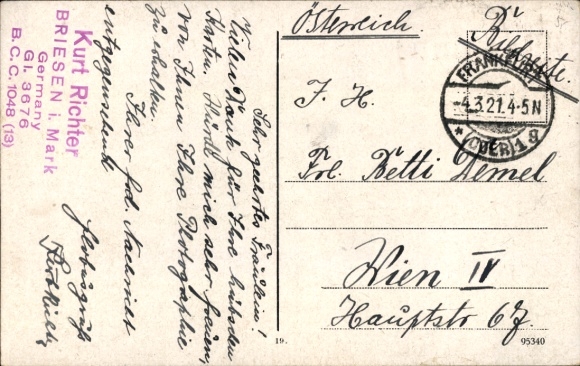 Österreich.
Rückseite.
FRANKFURT
-4.3.21.4-5N
* (ODER) 1 g
F. H.
Frl. Betti Demel
Wien IV
Hauptstr 67
19.
95340
Kurt Richter
BRIESEN i. Mark
Germany
Gl. 3676
B. C. C. 1048 (13)
Sehr geehrtes Fräulein!
Vielen Dank für Ihre hübschen
Karten. Würde mich sehr freuen,
von Ihnen, Ihre Photographie
zu erhalten.
Ihrer frd. Nachricht
entgegensehend